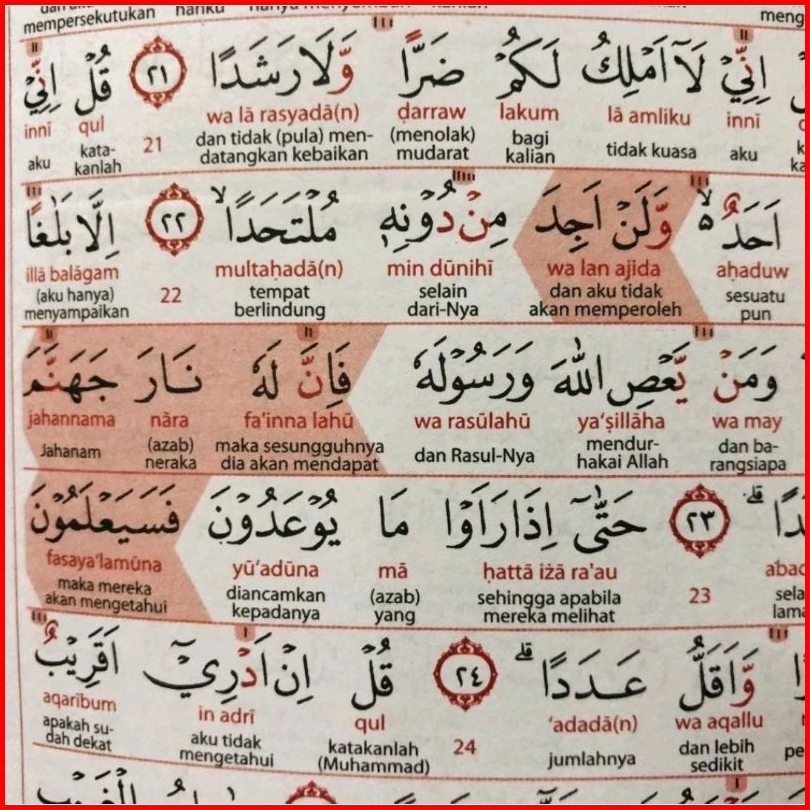 mempersekutukan
اِنِّيْ لَآ اَمْلِكُ لَكُمْ ضَرًّا وَّلَا رَشَدًا ٢١ قُلْ اِنِّيْ
innī lā amliku lakum ḍarraw wa lā rasyadā(n) 21 qul innī
aku tidak kuasa bagi kalian (menolak) mudarat dan tidak (pula) men-datangkan kebaikan kata-kanlah aku
اَحَدٌ ەۙ وَّلَنْ اَجِدَ مِنْ دُوْنِهٖ مُلْتَحَدًا ۙ ٢٢ اِلَّا بَلٰغًا
aḥaduw wa lan ajida min dūnihī multaḥadā(n) 22 illā balāgam
sesuatu pun dan aku tidak akan memperoleh selain dari-Nya tempat berlindung (aku hanya) menyampaikan
وَمَنْ يَّعْصِ اللّٰهَ وَرَسُوْلَهٗ فَاِنَّ لَهٗ نَارَ جَهَنَّمَ
wa may ya'ṣillāha wa rasūlahū fa'inna lahū nāra jahannama
dan ba-rangsiapa mendur-hakai Allah dan Rasul-Nya maka sesungguhnya dia akan mendapat (azab) neraka Jahanam
ۗ ٢٣ حَتّٰىٓ اِذَا رَاَوْا مَا يُوْعَدُوْنَ فَسَيَعْلَمُوْنَ
23 ḥattā iżā ra'au mā yū'adūna fasaya'lamūna
sehingga apabila mereka melihat (azab) yang diancamkan kepadanya maka mereka akan mengetahui
وَّاَقَلُّ عَدَدًا ۗ ٢٤ قُلْ اِنْ اَدْرِيْٓ اَقَرِيْبٌ
wa aqallu 'adadā(n) 24 qul in adrī aqarībum
dan lebih sedikit jumlahnya katakanlah (Muhammad) aku tidak mengetahui apakah su-dah dekat